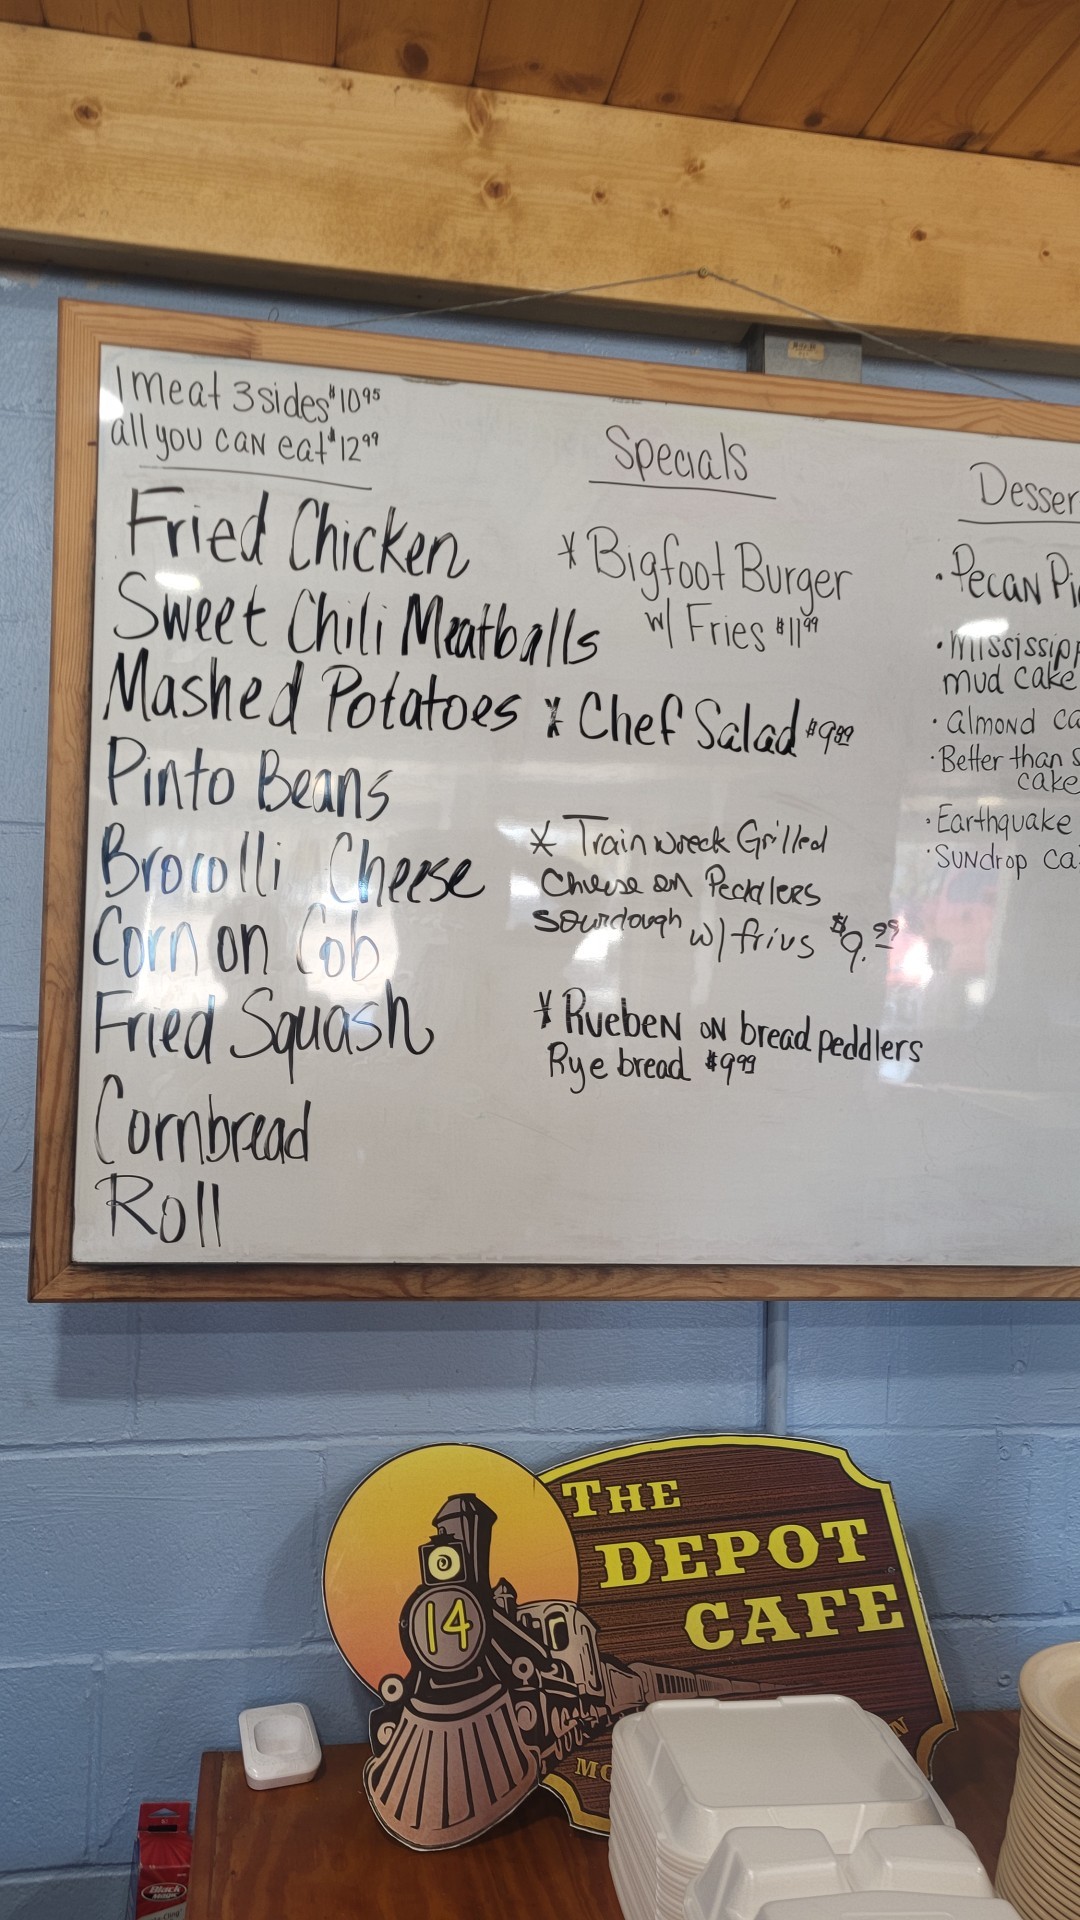 1 meat 3 sides $10 95
all you can eat $12 99
Fried Chicken
Sweet Chili Meatballs
Mashed Potatoes
Pinto Beans
Brocolli Cheese
Corn on Cob
Fried Squash
Cornbread
Roll
Specials
* Bigfoot Burger
w/ Fries $11 99
* Chef Salad $9 99
* Trainwreck Grilled
Cheese on Peddlers
sourdough w/ fries $9.99
* Rueben on bread peddlers
Rye bread $9 99
Desser
• Pecan Pi
• Mississipp
mud cake
• almond ca
• Better than s
cake
• Earthquake
• Sundrop ca
THE
DEPOT
CAFE
14
MO
N
Black
Magic